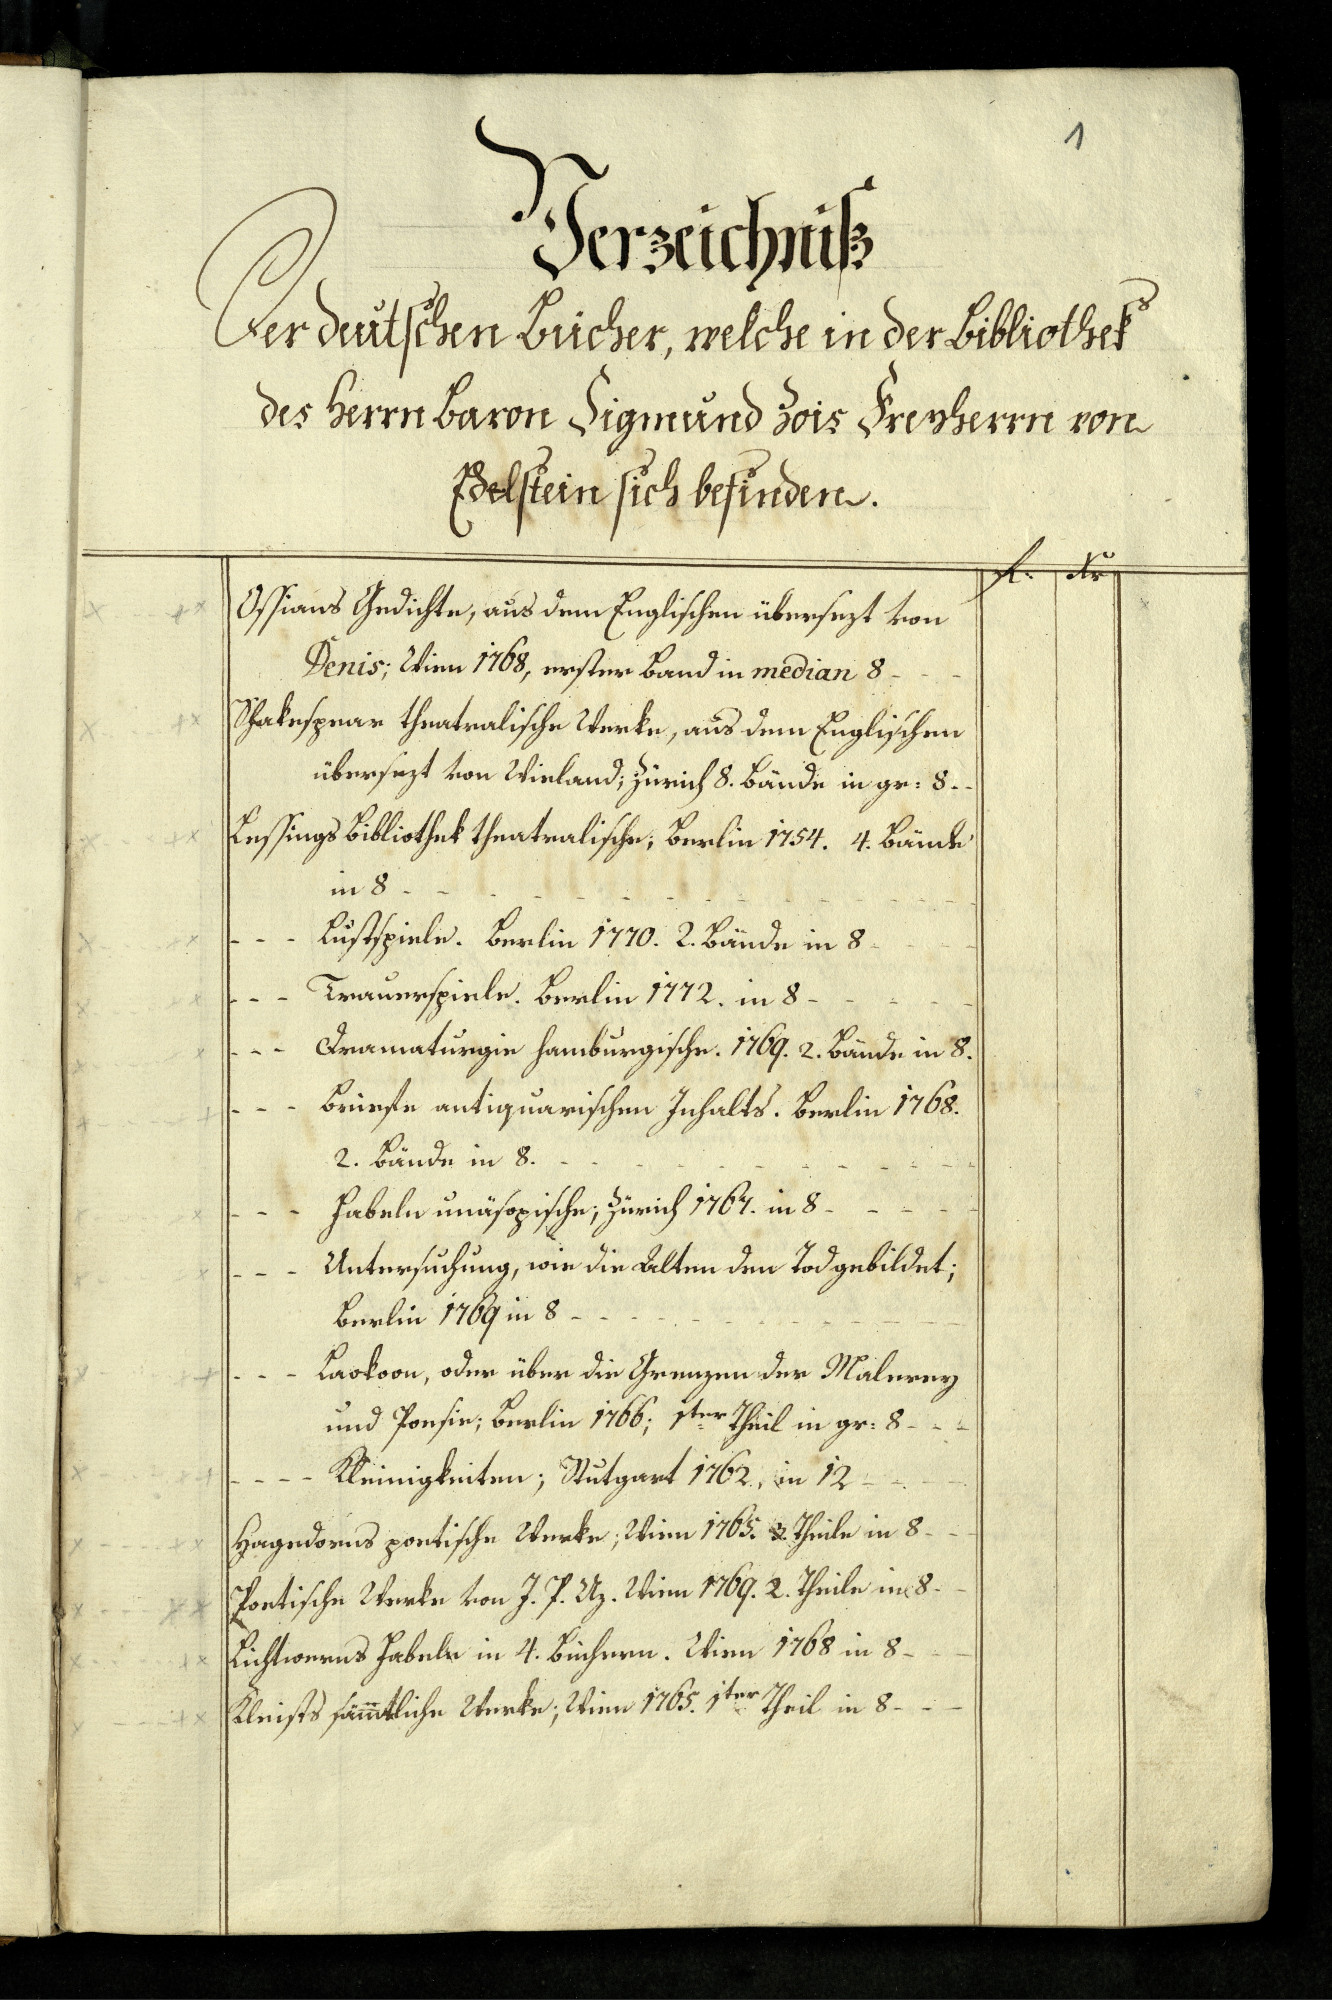 1
Verzeichniß
Der deutschen Bücher, welche in der Bibliothek
des Herrn Baron Sigmund Zois Freyherrn von
Edelstein sich befinden.
fl: Kr
Ossians Gedichte, aus dem Englischen übersezt von
Denis; Wien 1768, erster Band in median 8 - - -
Shakespear theatralische Werke, aus dem Englischen
übersezt von Wieland; Zürich 8. Bände in gr: 8. -
Lessings Bibliothek theatralische; Berlin 1754. 4. Bände
in 8 - - - - - - - - - - - -
- - - Lustspiele. Berlin 1770. 2. Bände in 8 - - - -
- - - Trauerspiele. Berlin 1772. in 8 - - - - -
- - - Dramaturgie hamburgische. 1769. 2. Bände in 8.
- - - Briefe antiquarischen Inhalts. Berlin 1768.
2. Bände in 8. - - - - - - - - - -
- - - Fabeln unäsopische; Zürich 1767. in 8 - - - - -
- - - Untersuchung, wie die Alten den Tod gebildet;
Berlin 1769 in 8 - - - - - - - - - -
- - - Laokoon, oder über die Grenzen der Malerey
und Poesie; Berlin 1766; 1ter Theil in gr: 8 - - -
- - - - Kleinigkeiten; Stutgart 1762. in 12 - - -
Hagedorns poetische Werke; Wien 1765. 3. Theile in 8 - - -
Poetische Werke von J. P. Uz. Wien 1769. 2. Theile in 8 - -
Lichtwerns Fabeln in 4. Büchern. Wien 1768 in 8 - - -
Kleists sämmtliche Werke; Wien 1765. 1ter Theil in 8 - - -